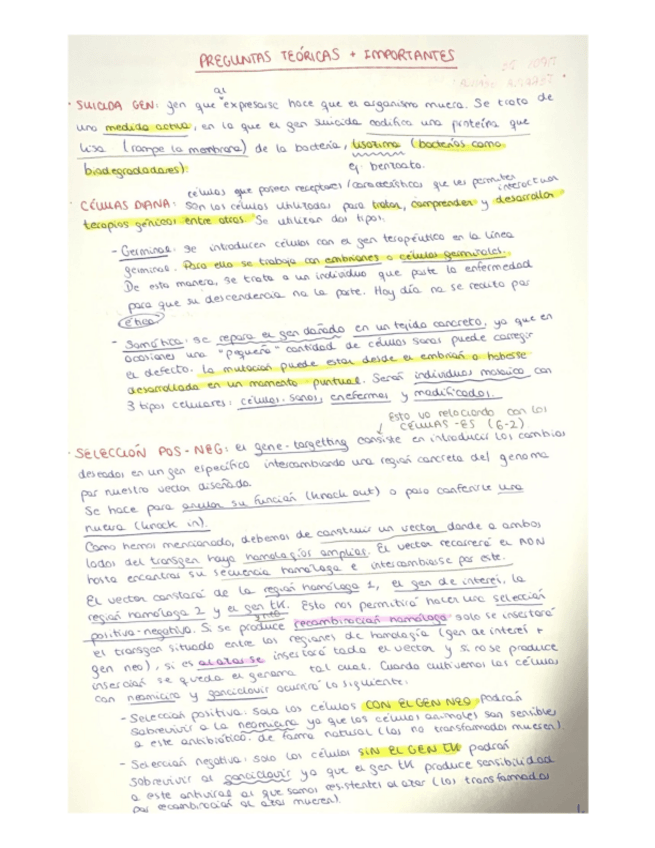 PREGUNTAS TEÓRICAS + IMPORTANTES
al
· SUICIDA GEN: gen que expresarse hace que el organismo muera. Se trata de
una medida activa, en la que el gen suicida codifica una proteína que
lisa (rompe la membrana) de la bacteria, lisozima (bacterias como
biodegradadores). ej benzoato.
células que poseen receptores/características que les permiten interactuar
· CÉLULAS DIANA: son las células utilizadas para tratar, comprender y desarrollar
terapias génicas entre otras. Se utilizan dos tipos:
- Germinal: se introducen células con el gen terapéutico en la línea
germinal. Para ello se trabaja con embriones o células germinales.
De esta manera, se trata a un individuo que porte la enfermedad
para que su descendencia no la porte. Hoy día no se realiza por
ética.
- Somática: se repara el gen dañado en un tejido concreto, ya que en
ocasiones una "pequeña" cantidad de células sanas puede corregir
el defecto. La mutación puede estar desde el embrión o haberse
desarrollado en un momento puntual. Serán individuos mosaico con
3 tipos celulares: células sanas, enfermas y modificadas.
Esto va relacionado con las
CÉLULAS-ES (6-2)
· SELECCIÓN POS-NEG: el gene-targetting consiste en introducir los cambios
deseados en un gen específico intercambiando una región concreta del genoma
por nuestro vector diseñado.
Se hace para anular su función (knock out) o para conferirle una
nueva (knock in).
Como hemos mencionado, debemos de construir un vector donde a ambos
lados del transgen haya homologías amplias. El vector recorrerá el ADN
hasta encontrar su secuencia homóloga e intercambiarse por este.
El vector constará de la región homóloga 1, el gen de interés, la
región homóloga 2 y el gen TK. Esto nos permitirá hacer una selección
neo
positiva-negativa. Si se produce recombinación homóloga solo se insertará
el transgen situado entre las regiones de homología (gen de interés +
gen neo), si es al azar se insertará todo el vector y si no se produce
inserción se queda el genoma tal cual. Cuando cultivemos las células
con neomicina y ganciclovir ocurrirá lo siguiente:
- Selección positiva: solo las células CON EL GEN NEO podrán
sobrevivir a la neomicina ya que las células animales son sensibles
a este antibiótico de forma natural (las no transformadas mueren).
- Selección negativa: solo las células SIN EL GEN TK podrán
sobrevivir al ganciclovir ya que el gen tk produce sensibilidad
a este antiviral al que somos resistentes al azar (las transformadas
por recombinación al azar mueren).
1.